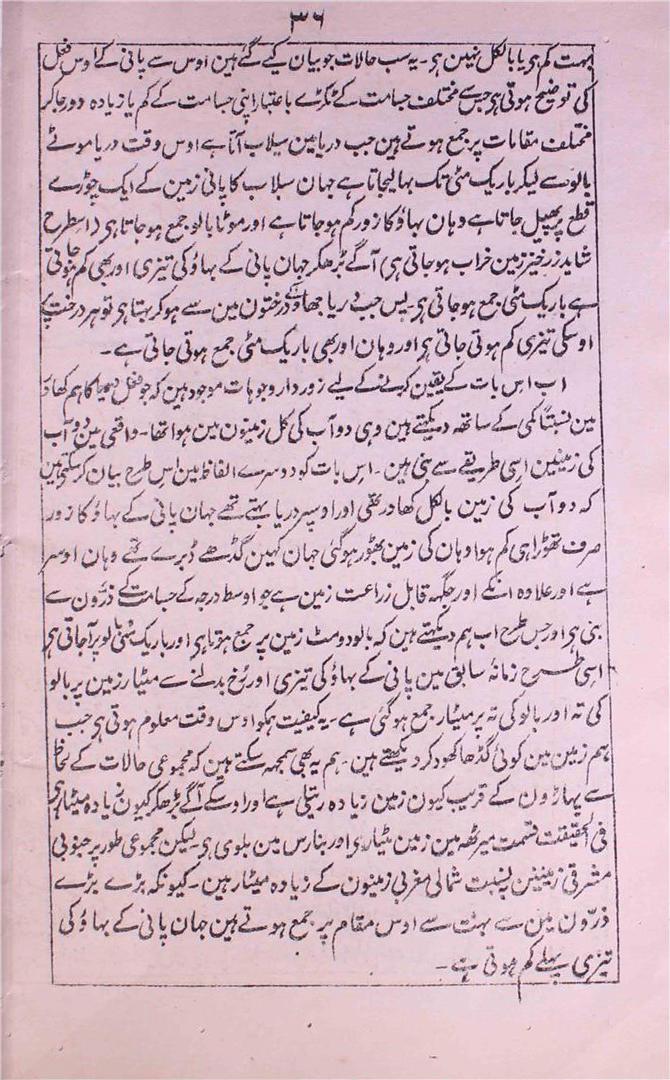 ۳۶
بہت کم ہی یا بالکل نہین ہی ۔ یہ سب حالات جو بیان کیے گئے ہین اوس سے پانی کے اوس فعل
کی توضیح ہوتی ہی جس سے مختلف جسامت کے ٹکڑے باعتبار اپنی جسامت کے کم یا زیادہ دور جا کر
مختلف مقامات پر جمع ہوتے ہین جب دریا مین سیلاب آتا ہے اوس وقت دریا موٹے
بالو سے لیکر باریک مٹی تک بہا لیجاتا ہے جہان سیلاب کا پانی زمین کے ایک چوڑے
قطع پر پھیل جاتا ہے وہان بہاؤ کا زور کم ہو جاتا ہے اور موٹا بالو جمع ہو جاتا ہی (اسطرح
شاید زرخیز زمین خراب ہو جاتی ہی) آگے بڑھکر جہان پانی کے بہاؤ کی تیزی اور بھی کم ہو جاتی
ہے باریک مٹی جمع ہو جاتی ہی ۔ پس جب دریا جھاؤ کے درختون مین سے ہو کر بہتا ہی تو ہر درخت پر
اوسکی تیزی کم ہوتی جاتی ہی اور وہان اور بھی باریک مٹی جمع ہوتی جاتی ہے ۔
اب اس بات کے یقین کرنے کے لیے زور دار وجوہات موجود ہین کہ جو فعل دریا کا ہم کھادر
مین نسبتاً کمی کے ساتھ دیکھتے ہین وہی دوآب کی کل زمینون مین ہوا تھا ۔ واقعی مین دوآب
کی زمینین اسی طریقے سے بنی ہین ۔ اس بات کو دوسرے الفاظ مین اس طرح بیان کر سکتے ہین
کہ دوآب کی زمین بالکل کھادر تھی اور اوسپر دریا بہتے تھے جہان پانی کے بہاؤ کا زور
صرف تھوڑا ہی کم ہوا وہان کی زمین بھوڑ ہو گئی جہان کہین گڈھے ڈبرے تھے وہان اوسر
ہے اور علاوہ انکے اور جگہہ قابل زراعت زمین ہے جو اوسط درجہ کے جسامت کے ذرّون سے
بنی ہی اور جس طرح اب ہم دیکھتے ہین کہ بالو دومٹ زمین پر جمع ہوتا ہی اور باریک مٹی بالو پر آجاتی ہی
اسی طرح زمانہ سابق مین پانی کے بہاؤ کی تیزی اور رُخ بدلنے سے مٹیار زمین پر بالو
کی تہ اور بالو کی تہ پر مٹیار جمع ہو گئی ہے ۔ یہ کیفیت ہمکو اوس وقت معلوم ہوتی ہی جب
ہم زمین مین کوئی گڈھا کھود کر دیکھتے ہین ۔ ہم یہ بھی سمجہہ سکتے ہین کہ مجموعی حالات کے لحاظ
سے پہاڑون کے قریب کیون زمین زیادہ ریتلی ہے اور اوسکے آگے بڑھکر کیون زیادہ مٹیار ہی
فی الحقیقت قسمت میرٹھ مین زمین مٹیار ہی اور بنارس مین بلوی ہی لیکن مجموعی طور پر جنوبی
مشرقی زمینین بہ نسبت شمالی مغربی زمینون کے زیادہ مٹیار ہین ۔ کیونکہ بڑے بڑے
ذرّون مین سے بہت سے اوس مقام پر جمع ہوتے ہین جہان پانی کے بہاؤ کی
تیزی پہلے کم ہوتی ہے ۔